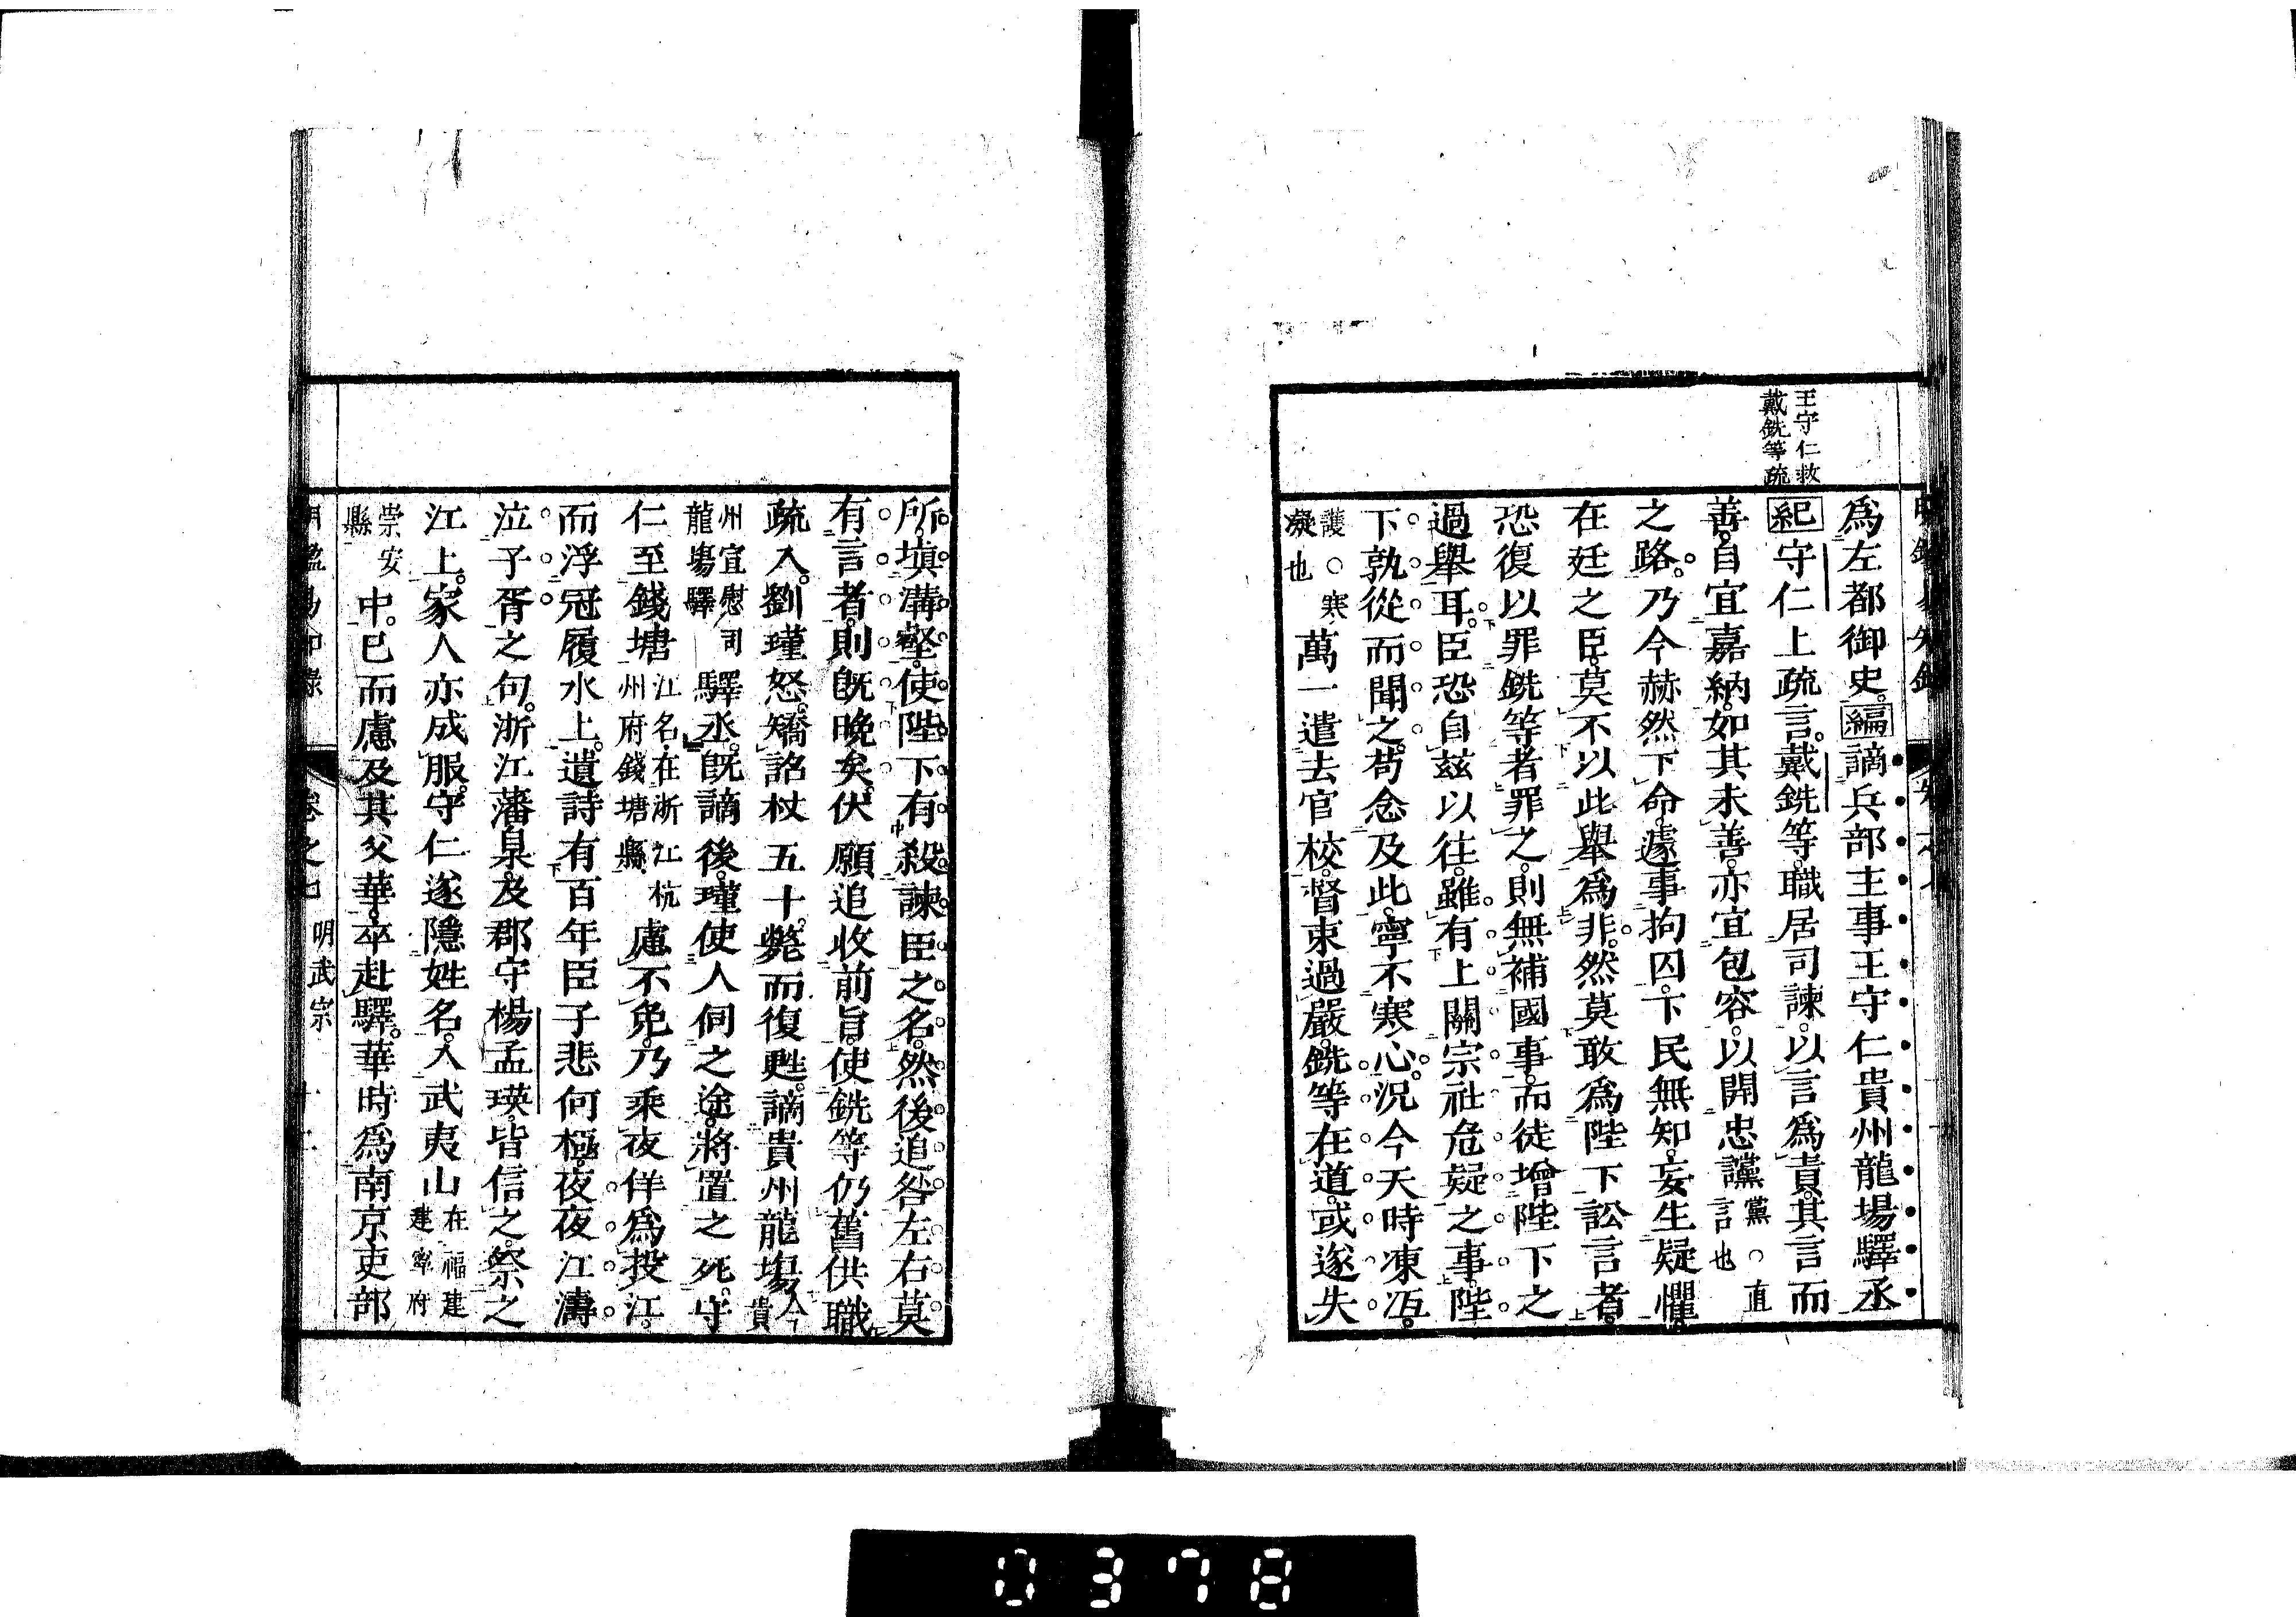 王守仁救
戴銑等疏
爲左都御史。編謫兵部主事王守仁貴州龍場驛丞
紀守仁上疏言。戴銑等。職居司諫。以言爲責。其言而
善。自宜嘉納。如其未善。亦宜包容。以開忠讜黨○直言也
之路。乃今赫然下命。遽事拘囚。下民無知。妄生疑懼。
在廷之臣。莫不以此舉爲非。然莫敢爲陛下訟言者。
恐復以罪銑等者罪之。則無補國事。而徒增陛下之
過舉耳。臣恐自茲以往。雖有上關宗社危疑之事。陛
下孰從而聞之。苟念及此。寧不寒心。況今天時凍冱。
護○寒凝也萬一遣去官校。督束過嚴。銑等在道。或遂失
所。塡溝壑。使陛下有殺諫臣之名。然後追咎左右莫
有言者。則既晚矣。伏願追收前旨。使銑等仍舊供職
疏入。劉瑾怒。矯詔杖五十。斃而復甦。謫貴州龍場今貴
州宣慰司龍場驛驛丞。既謫後。瑾使人伺之途。將置之死。守
仁至錢塘江名。在浙江杭州府錢塘縣。慮不免。乃乘夜佯爲投江。
而浮冠履水上。遺詩有百年臣子悲何極。夜夜江濤
泣子胥之句。浙江藩臬。及郡守楊孟瑛。皆信之。祭之
江上。家人亦成服。守仁遂隱姓名。入武夷山在福建建寧府
崇安縣中。已而慮及其父華。卒赴驛。華時爲南京吏部
明武宗
0378